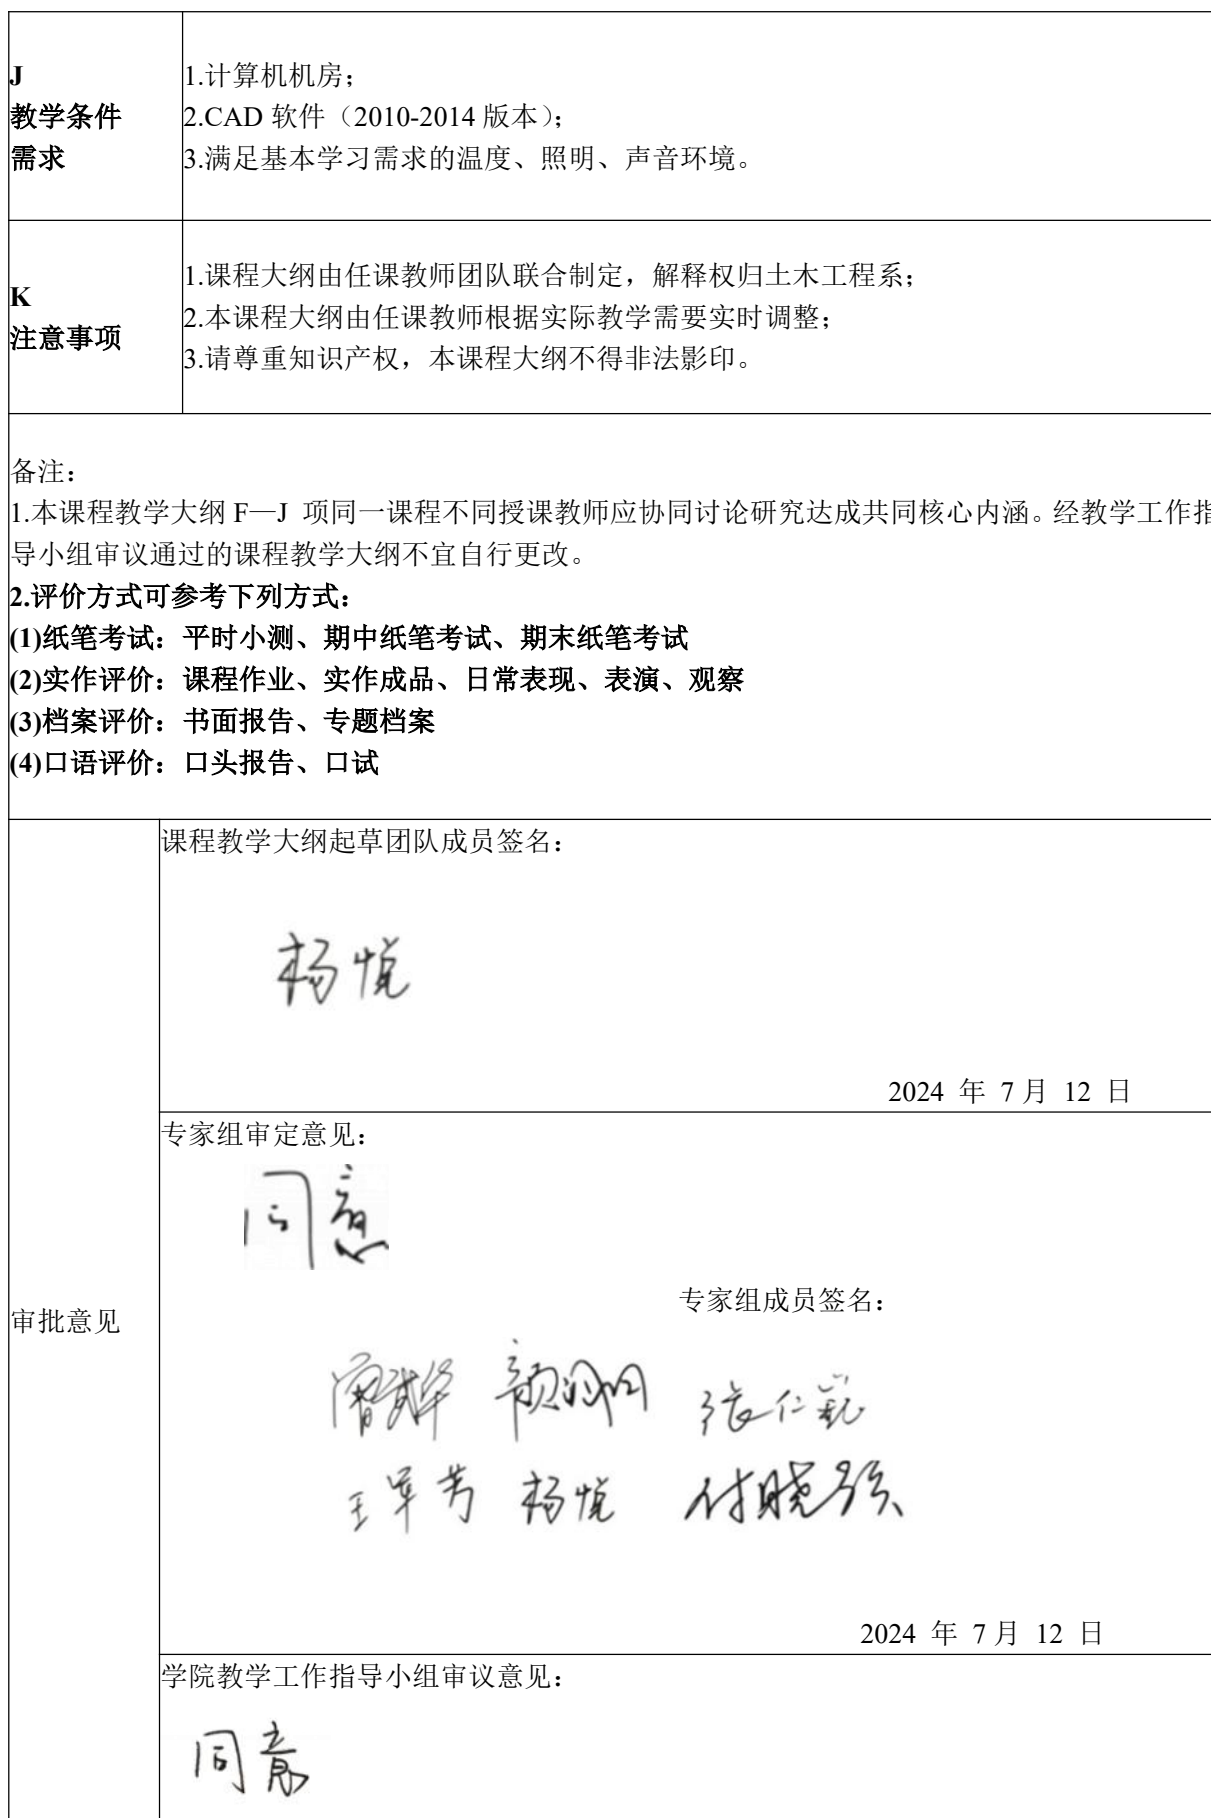 J
教学条件
需求
1.计算机机房；
2.CAD 软件（2010-2014 版本）；
3.满足基本学习需求的温度、照明、声音环境。
K
注意事项
1.课程大纲由任课教师团队联合制定，解释权归土木工程系；
2.本课程大纲由任课教师根据实际教学需要实时调整；
3.请尊重知识产权，本课程大纲不得非法影印。
备注：
1.本课程教学大纲 F—J 项同一课程不同授课教师应协同讨论研究达成共同核心内涵。经教学工作指
导小组审议通过的课程教学大纲不宜自行更改。
2.评价方式可参考下列方式：
(1)纸笔考试：平时小测、期中纸笔考试、期末纸笔考试
(2)实作评价：课程作业、实作成品、日常表现、表演、观察
(3)档案评价：书面报告、专题档案
(4)口语评价：口头报告、口试
审批意见
课程教学大纲起草团队成员签名：
杨悦
2024 年 7 月 12 日
专家组审定意见：
同意
专家组成员签名：
张仁巍
王军芳 杨悦 付晓强
2024 年 7 月 12 日
学院教学工作指导小组审议意见：
同意